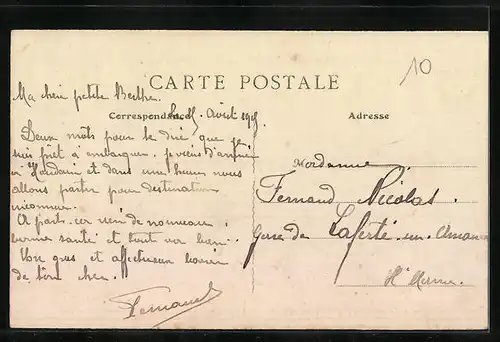 10
CARTE POSTALE
Ma petite Berthe
Correspondance
Adresse
Août
Deux mots pour te dire que je
suis prêt à embarquer. je viens d'arriver
à et dans une heure nous
allons partir pour destination
inconnue.
A part cer rien de nouveau.
bonne santé et tout va bien.
Un gros et affectueux baiser
de ton
Fernand
Madame
Fernand Nicolas.
Gare de Laferté sur Amance
Hte Marne.